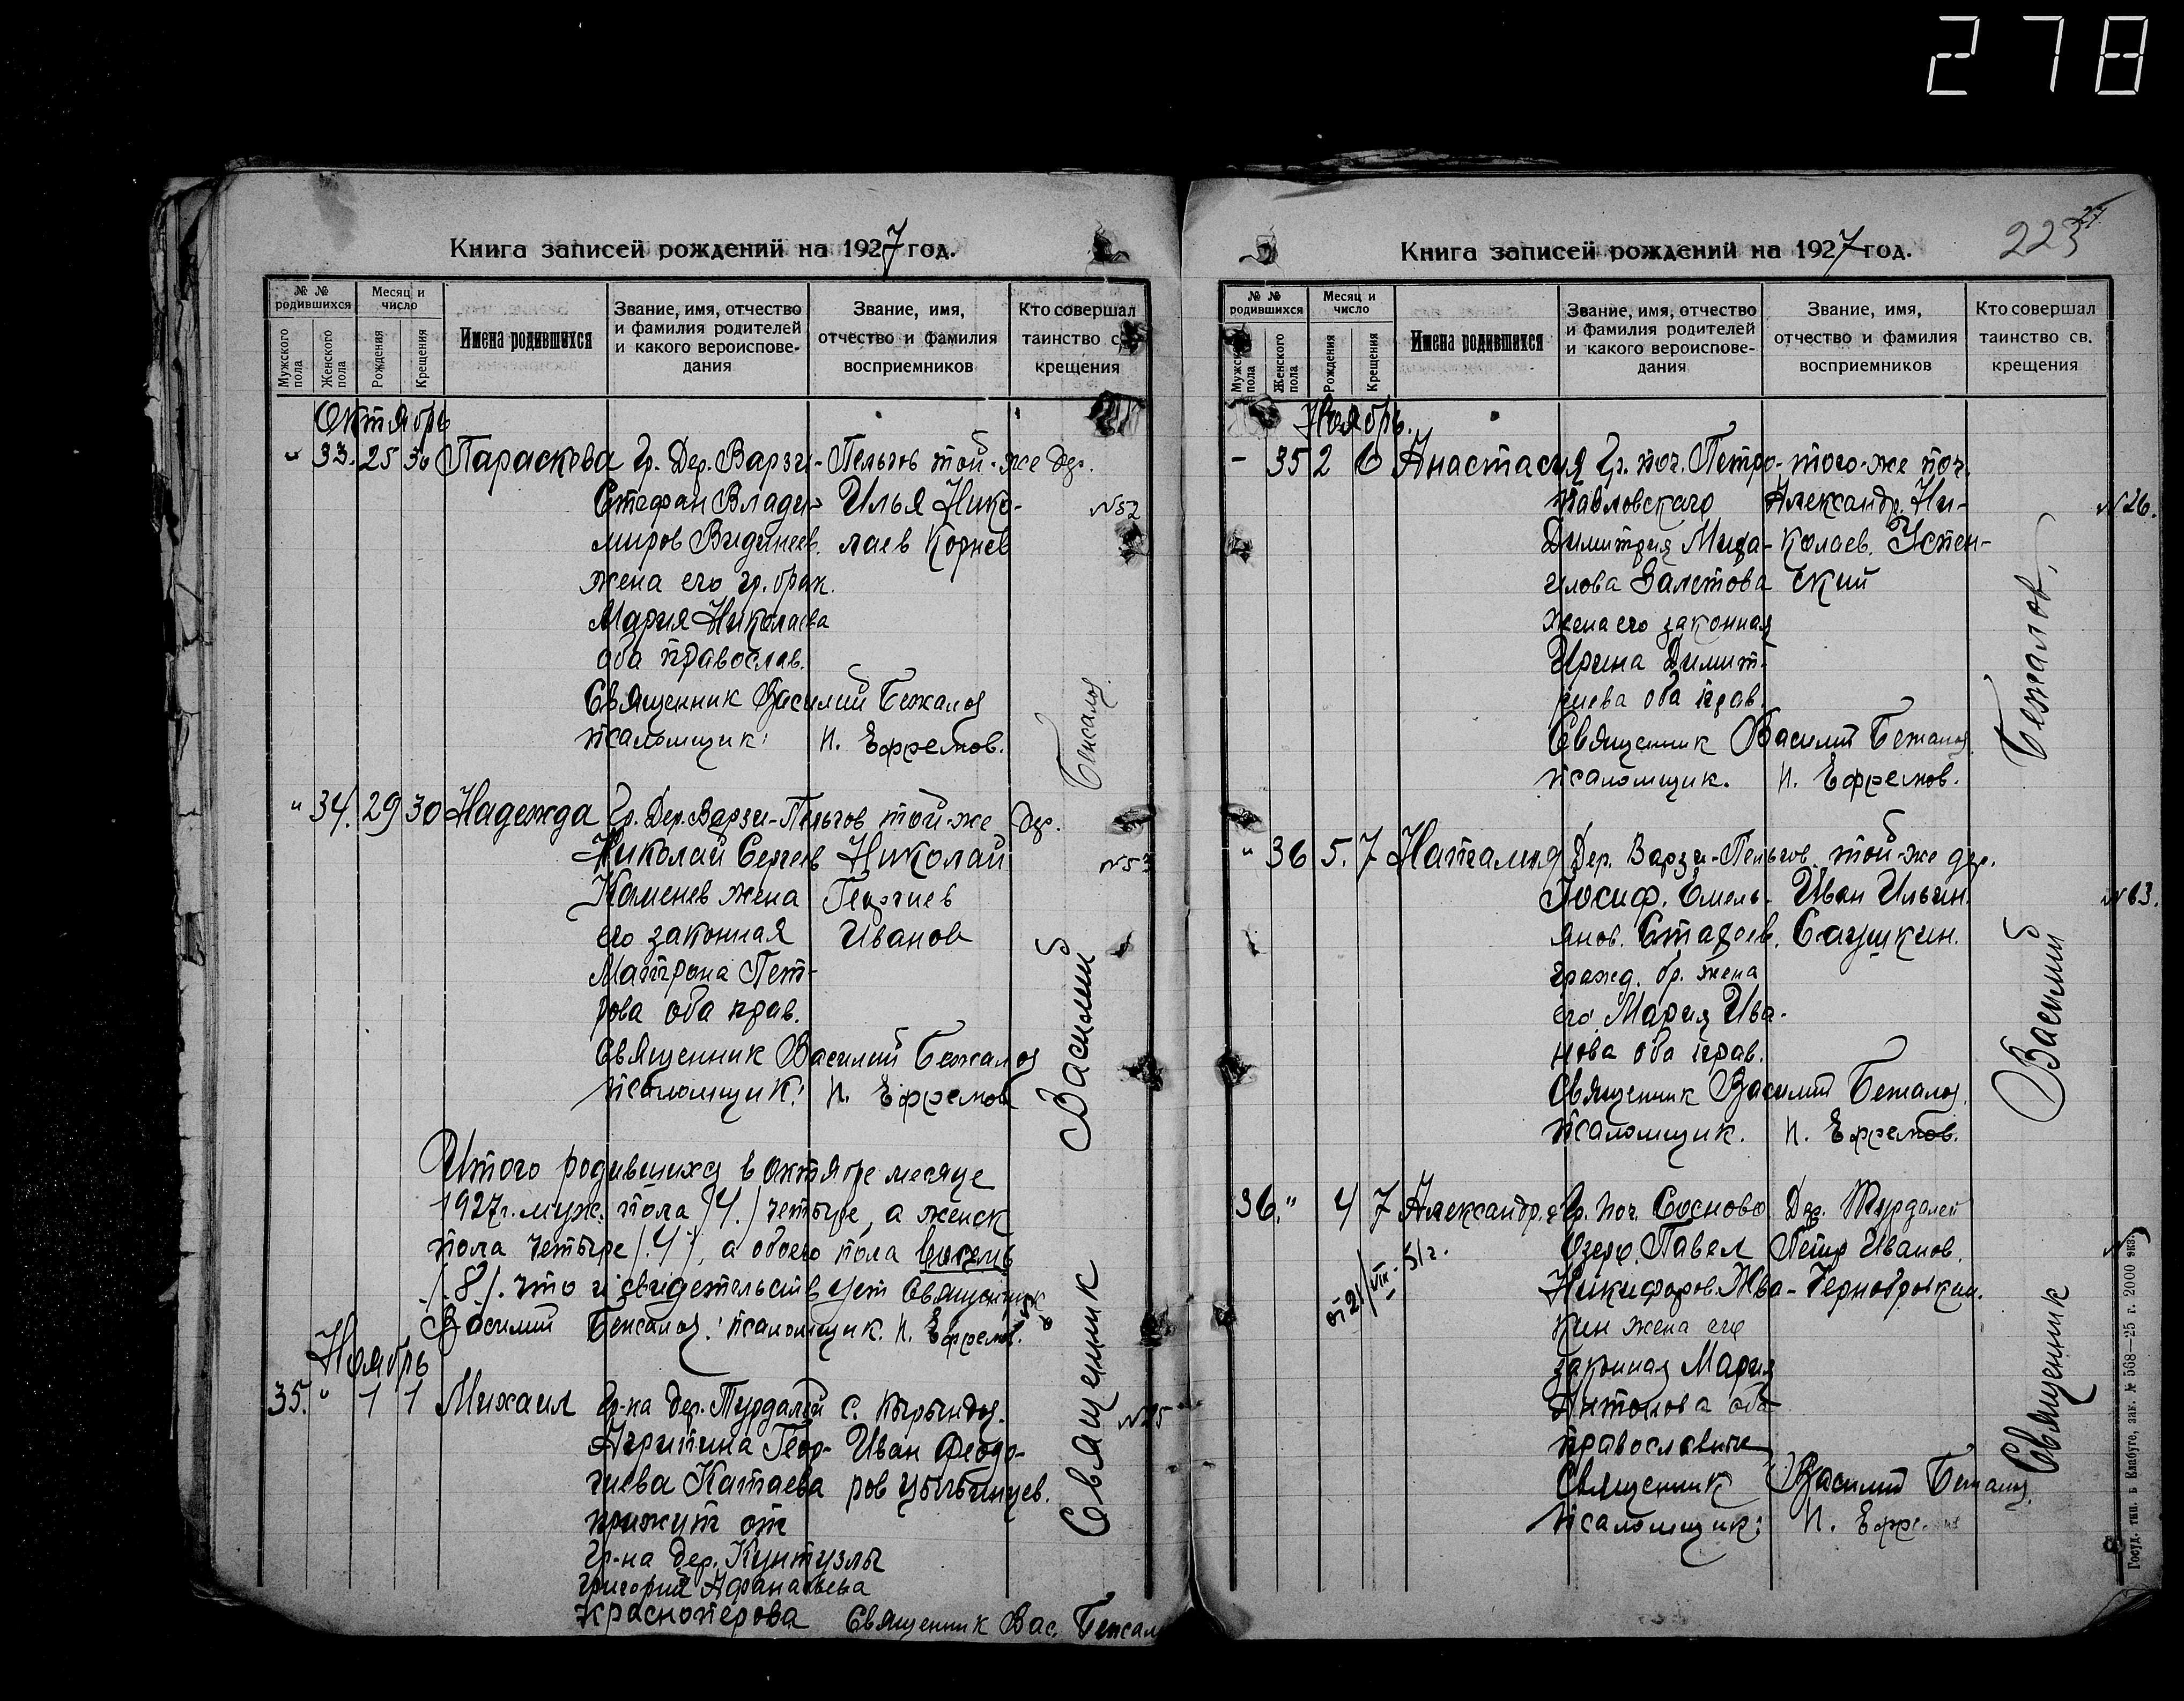 278
Книга записей рождений на 1927 год.
№ № родившихся
Мужского пола
Женского пола
Месяц и число
Рождения
Крещения
Имена родившихся
Звание, имя, отчество и фамилия родителей и какого вероисповедания
Звание, имя, отчество и фамилия восприемников
Кто совершал таинство св. крещения
Октябрь
" 33. 25 30 Параскева Гр. Дер. Варзи-Пельгов той-же дер.
Стефан Влади- Илья Нико- №52
миров Видинеев. лаев Корнев
жена его гр. брак.
Мария Николаева
оба православ.
Священник Василий Бежалов
псаломщик: И. Ефремов.
" 34. 29 30 Надежда Гр. Дер. Варзи-Пельгов той-же дер.
Николай Сергеев Николай №53
Каменев жена Георгиев
его законная Иванов
Матрона Пет-
рова оба прав.
Священник Василий Бежалов
псаломщик: И. Ефремов
Итого родившихся в октябре месяце
1927 г. муж. пола /4./ четыре, а женск
пола четыре /.4./, а обоего пола восемь
/.8/. что и свидетельствует Священник
Василий Бежалов: псаломщик. И. Ефремов.
Ноябрь
35. " 1 1 Михаил Гр-ка дер. Турдалей с. Кырындов.
Агрипина Геор- Иван Феодо-
гиева Катаева ров
прижут от
Гр-на дер. Кунтузлы
Григория Афанасьева
Красноперова Священник Вас. Бежал
Священник Василий Бежалов
Книга записей рождений на 1927 год.
223
№ № родившихся
Мужского пола
Женского пола
Месяц и число
Рождения
Крещения
Имена родившихся
Звание, имя, отчество и фамилия родителей и какого вероисповедания
Звание, имя, отчество и фамилия восприемников
Кто совершал таинство св. крещения
Ноябрь.
- 35 2 6 Анастасия Гр. поч. Петро- того-же поч.
павловского Александр. Ни- №26.
Димитрия Миха- колаев. Успен-
илова Залетова ский
жена его законная
Ирина Димит-
риева оба прав.
Священник Василий Бежалов
псаломщик. И. Ефремов.
" 36 5. 7 Наталия Дер. Варзи-Пельгов. той-же дер.
Иосиф. Емель- Иван Ильин.
янов. Стадоев. Саушкин.
гражд. бр. жена
его Мария Ива-
нова оба прав.
Священник Василий Бежалов.
псаломщик. И. Ефремов.
36. " 4 7 Александр. Гр. поч. Сосново Дер. Турдалей
Озеро. Павел Петр Иванов.
от 21/VIII-51 г.
Никифоров Жва- Чернобровкин.
кин жена его
законная Мария
Антонова оба
православные
Священник Василий Бежалов.
псаломщик: И. Ефре
Священник Василий Бежалов.
Госуд. тип. в Елабуге, зак. № 568—25 г. 2000 экз.